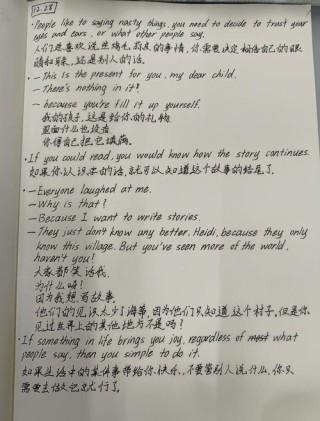 12.28
· People like to saying nasty things, you need to decide to trust your
eyes and ears, or what other people say.
人们总喜欢说些鸡毛蒜皮的事情，你需要决定相信自己的眼
睛和耳朵，还是别人的话。
· — This is the present for you, my dear child.
— There's nothing in it!
— because you're fill it up yourself.
我的孩子，这是给你的礼物
里面什么也没有
你得自己把它填满。
· If you could read, you would know how the story continues.
如果你认识字的话，就可以知道这个故事的结尾了.
· — Everyone laughed at me.
— Why is that?
— Because I want to write stories.
— They just don't know any better, Heidi, because they only
know this village. But you've seen more of the world,
haven't you?
大家都笑话我.
为什么呢！
因为我想写故事.
他们的见识太少了海蒂，因为他们只知道这个村子，但是你
见过世界上的其他地方不是吗？
· If something in life brings you joy, regardless of what
people say, then you simple to do it.
如果生活中的某件事带给你快乐，不要管别人说什么，你只
需要去做它就行了.